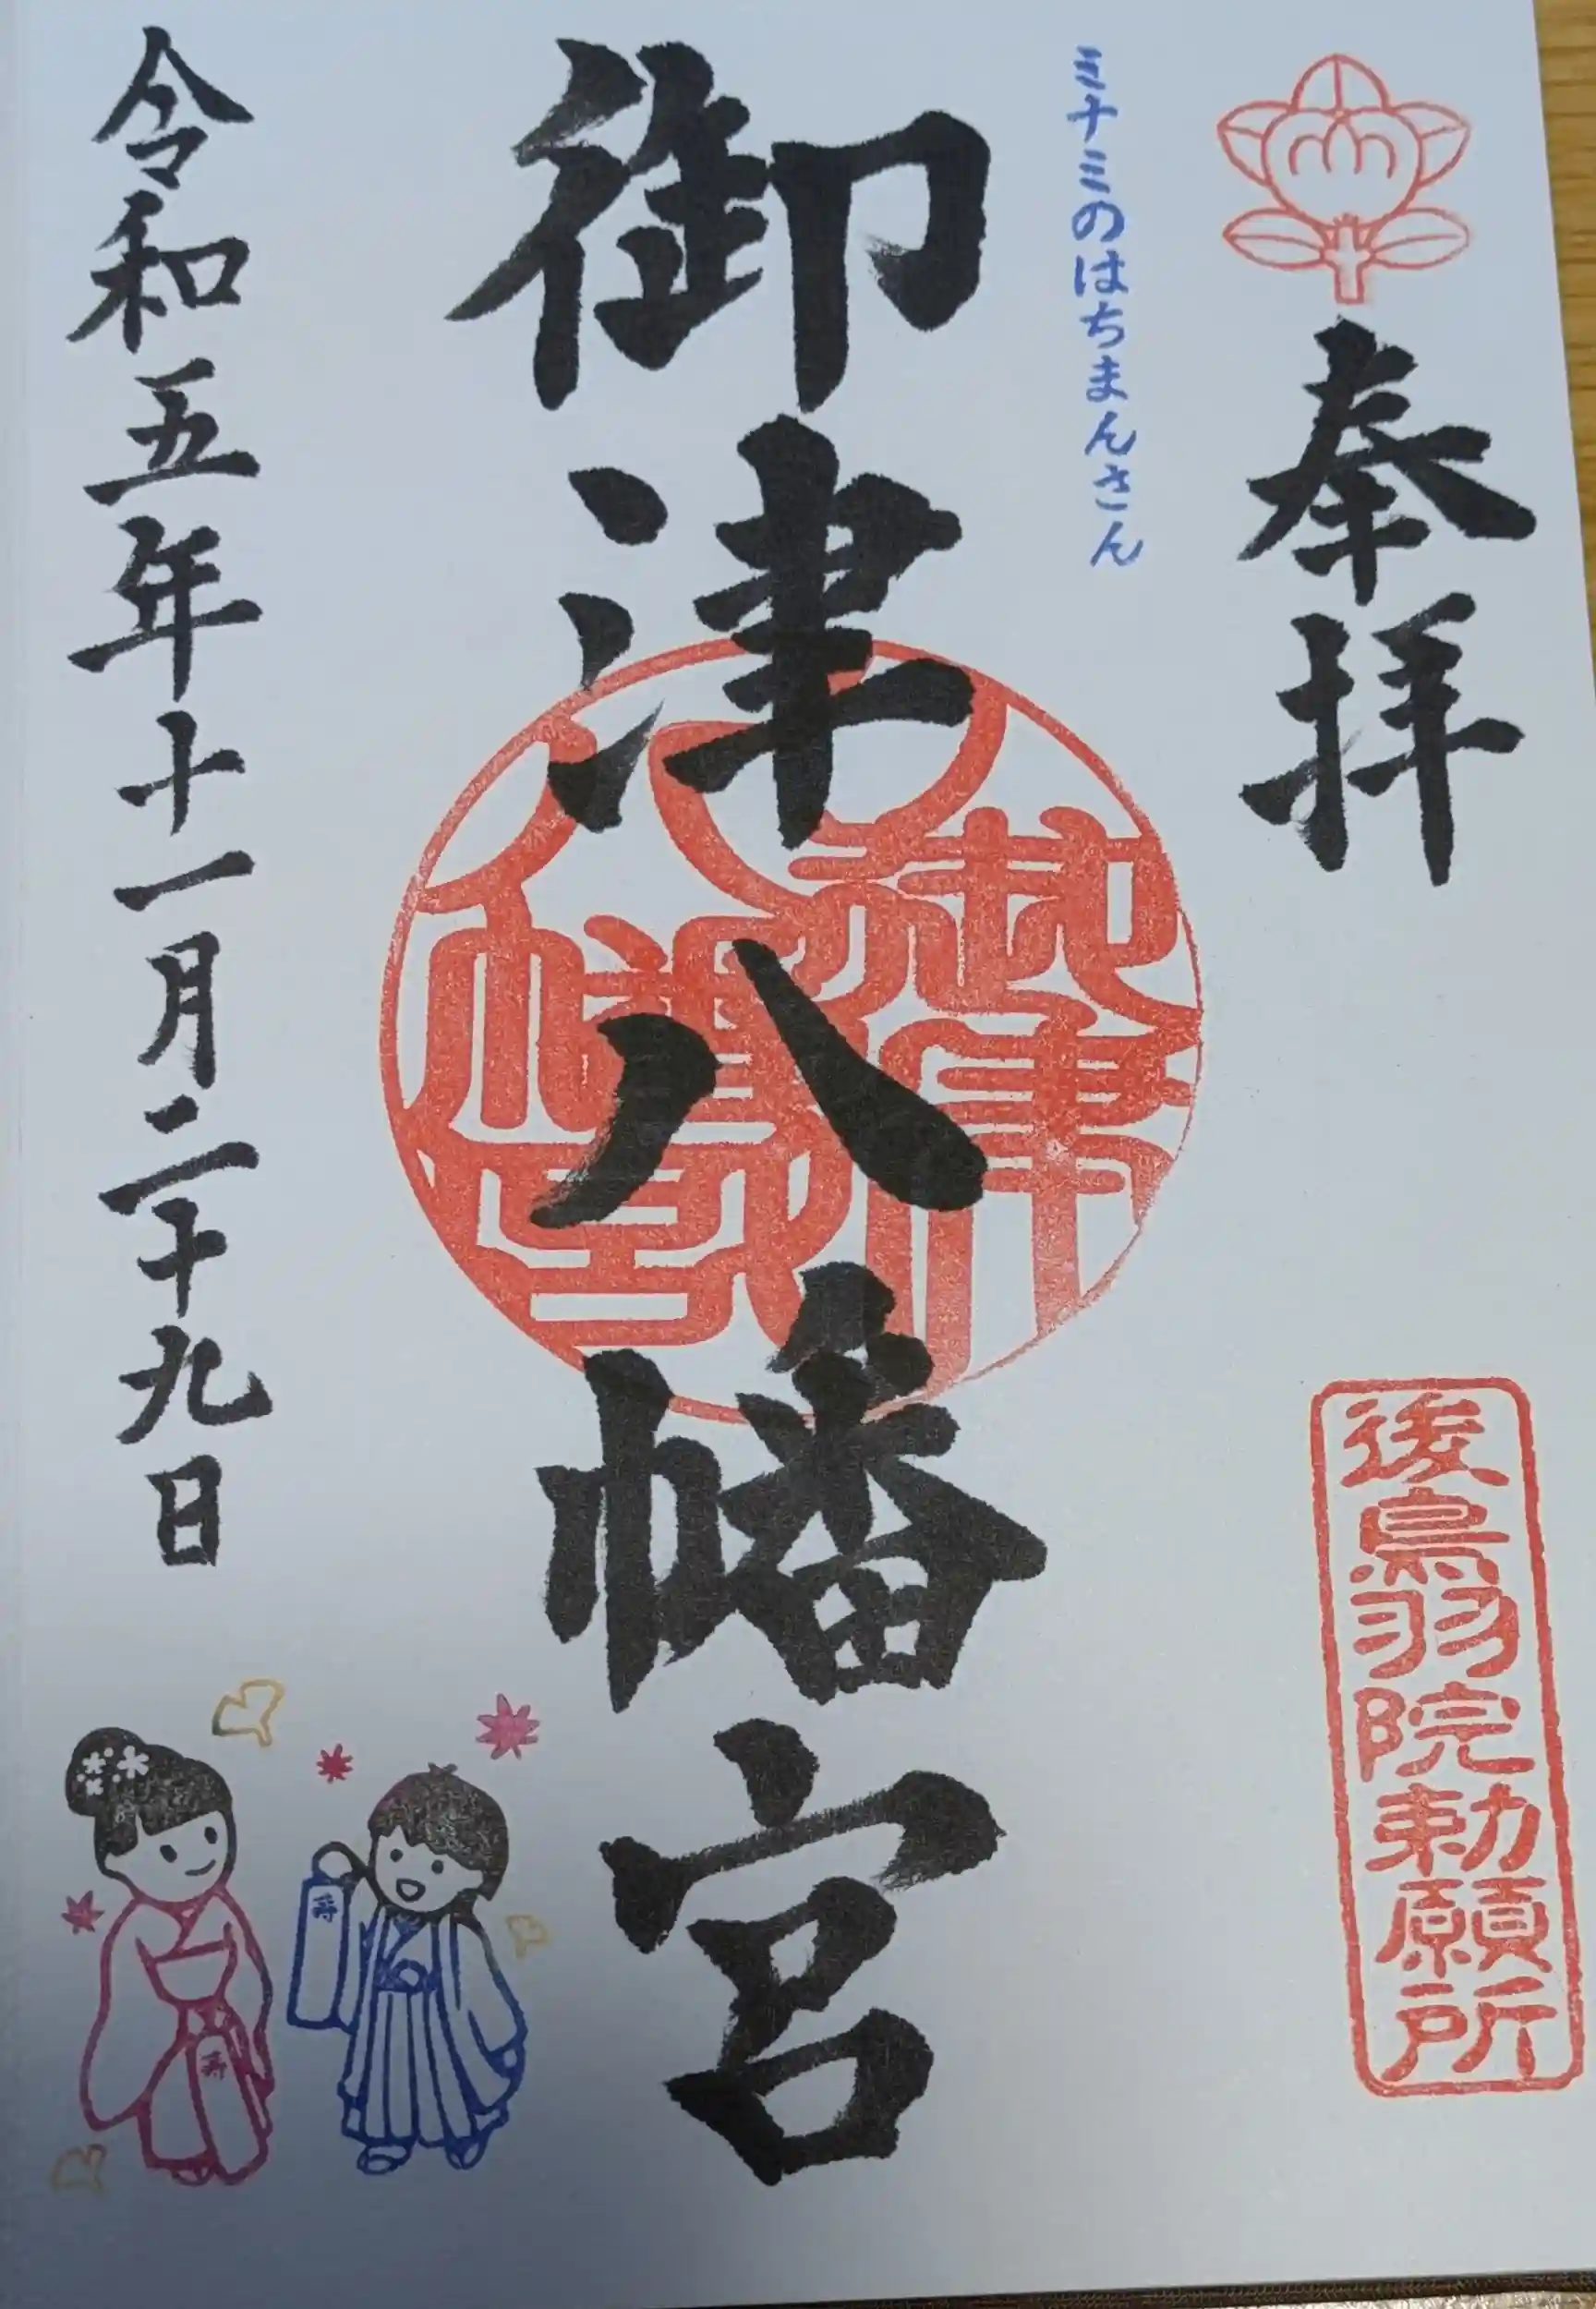 奉拝
後鳥羽院勅願所
三十三のはちまんさん
御津八幡宮
御津八幡宮
令和五年十一月二十九日
寿
寿